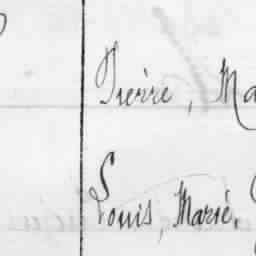 Pierre, Ma
Louis, Marie,